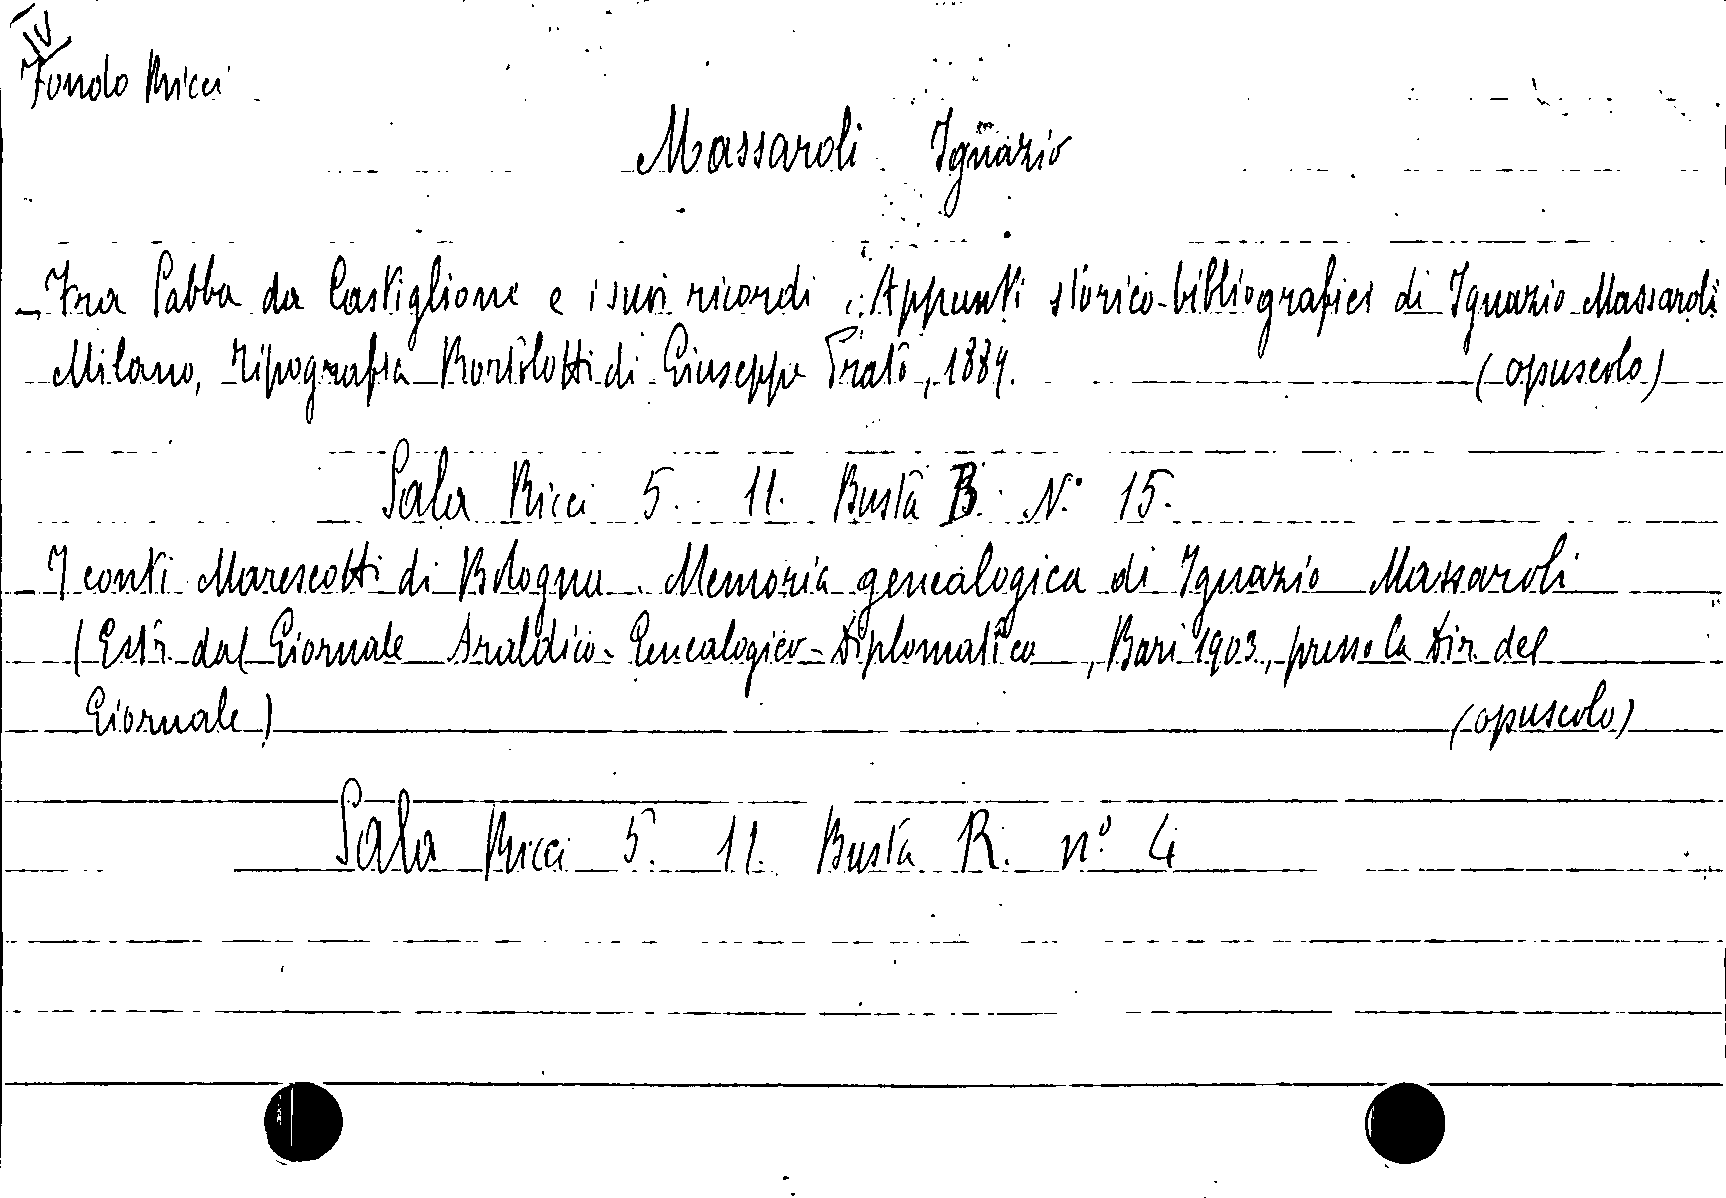 IV
Fondo Ricci
Massaroli Ignazio
- Fra Sabba da Castiglione e i suoi ricordi. Appunti storico-bibliografici di Ignazio Massaroli
Milano, Tipografia Bortolotti di Giuseppe Prato, 1889.
(opuscolo)
Sala Ricci 5. 11. Busta B. N.° 15.
- I conti Marescotti di Bologna. Memoria genealogica di Ignazio Massaroli
(Estr. dal Giornale Araldico-Genealogico-Diplomatico, Bari 1903, presso la Dir. del
Giornale)
(opuscolo)
Sala Ricci 5. 11. Busta R. n.° 4